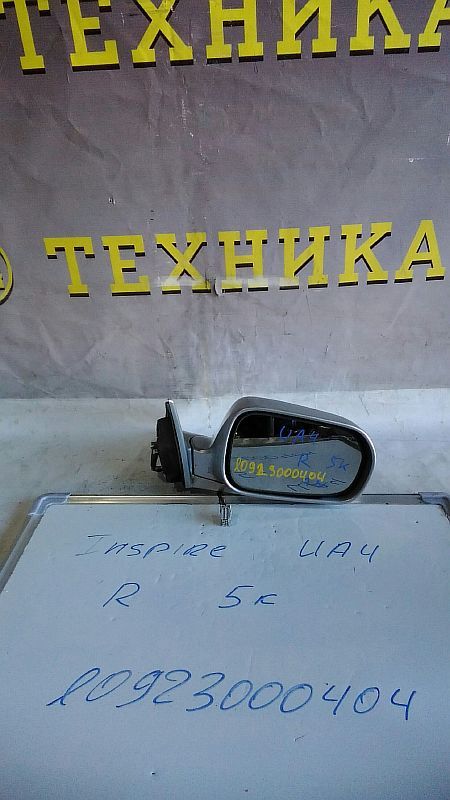 ТЕХНИКА
ТЕХНИКА
UA4
R 5K
l0923000404
Inspire UA4
R 5K
l0923000404